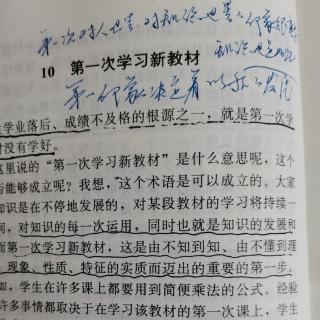 第一次对人也罢、对知识也罢
10 第一次学习新教材
第一印象决定着以后的发展
学业落后、成绩不及格的根源之一，就是第一次学
时没有学好。
这里说的“第一次学习新教材”是什么意思呢，这个
否能够成立呢？我想，这个术语是可以成立的。大家
知识是在不停地发展的，对某段教材的学习将持续一
间，对知识的每一次运用，同时也就是知识的发展和
而第一次学习新教材，这是由不知到知、由不懂到理
、现象、性质、特征的实质而迈出的重要的第一步。
如，学生在许多课上都要用到简便乘法的公式。经验
许多事情都取决于在学习该教材的第一次课上，学生